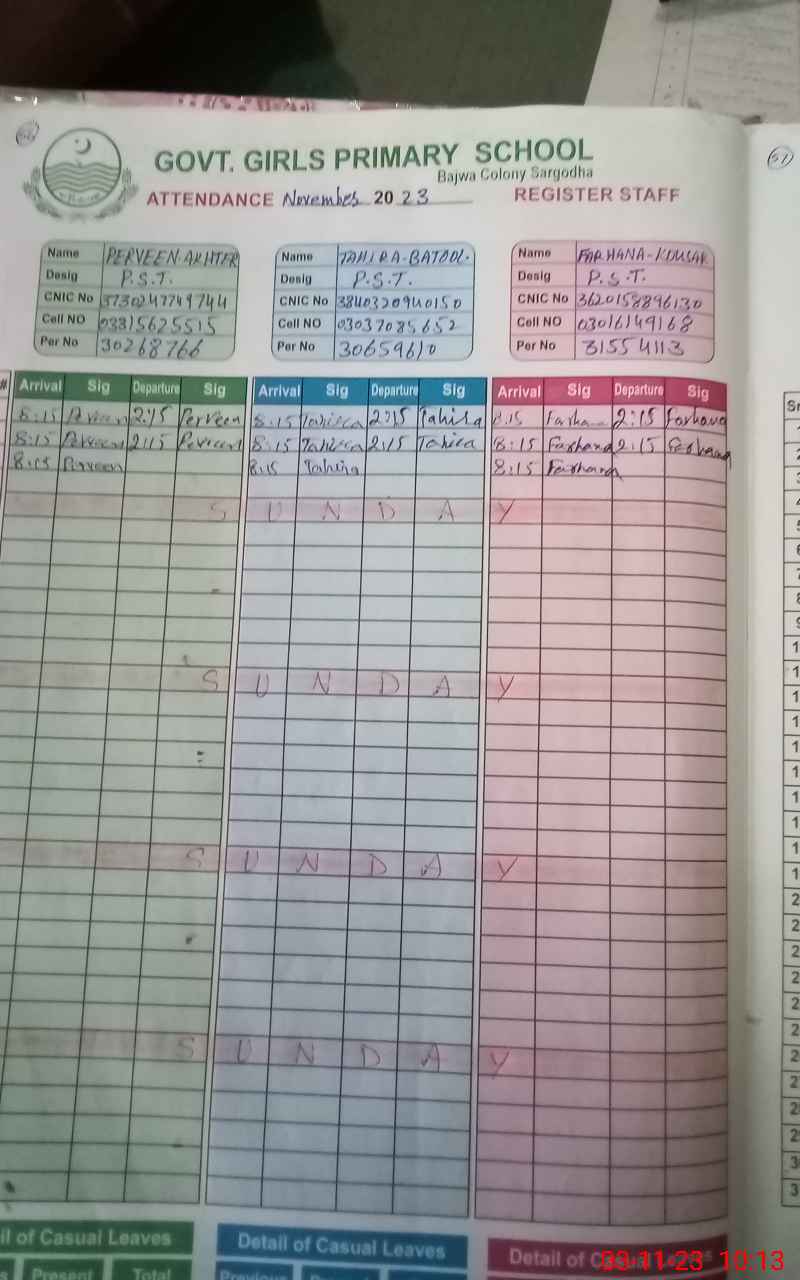 GOVT. GIRLS PRIMARY SCHOOL
Bajwa Colony Sargodha
ATTENDANCE November 2023 REGISTER STAFF
Name PERVEEN-AKHTER Name TAHIRA-BATOOL. Name FARHANA-KOUSAR
Desig P.S.T. Desig P.S.T. Desig P.S.T.
CNIC No 3730247749744 CNIC No 3840320940150 CNIC No 3620158896130
Cell NO 03315625515 Cell NO 03037085652 Cell NO 03016149168
Per No 30268766 Per No 30659610 Per No 31554113
# Arrival Sig Departure Sig Arrival Sig Departure Sig Arrival Sig Departure Sig Sr
8:15 Perveen 2:15 Perveen 8:15 Tahira 2:15 Tahira 8:15 Farhana 2:15 Farhana
8:15 Perveen 2:15 Perveen 8:15 Tahira 2:15 Tahira 8:15 Farhana 2:15 Farhana
8:15 Perveen 8:15 Tahira 8:15 Farhana
S U N D A Y
S U N D A Y
S U N D A Y
S U N D A Y
il of Casual Leaves Detail of Casual Leaves Detail of Casual
Present Total
03-11-23 10:13